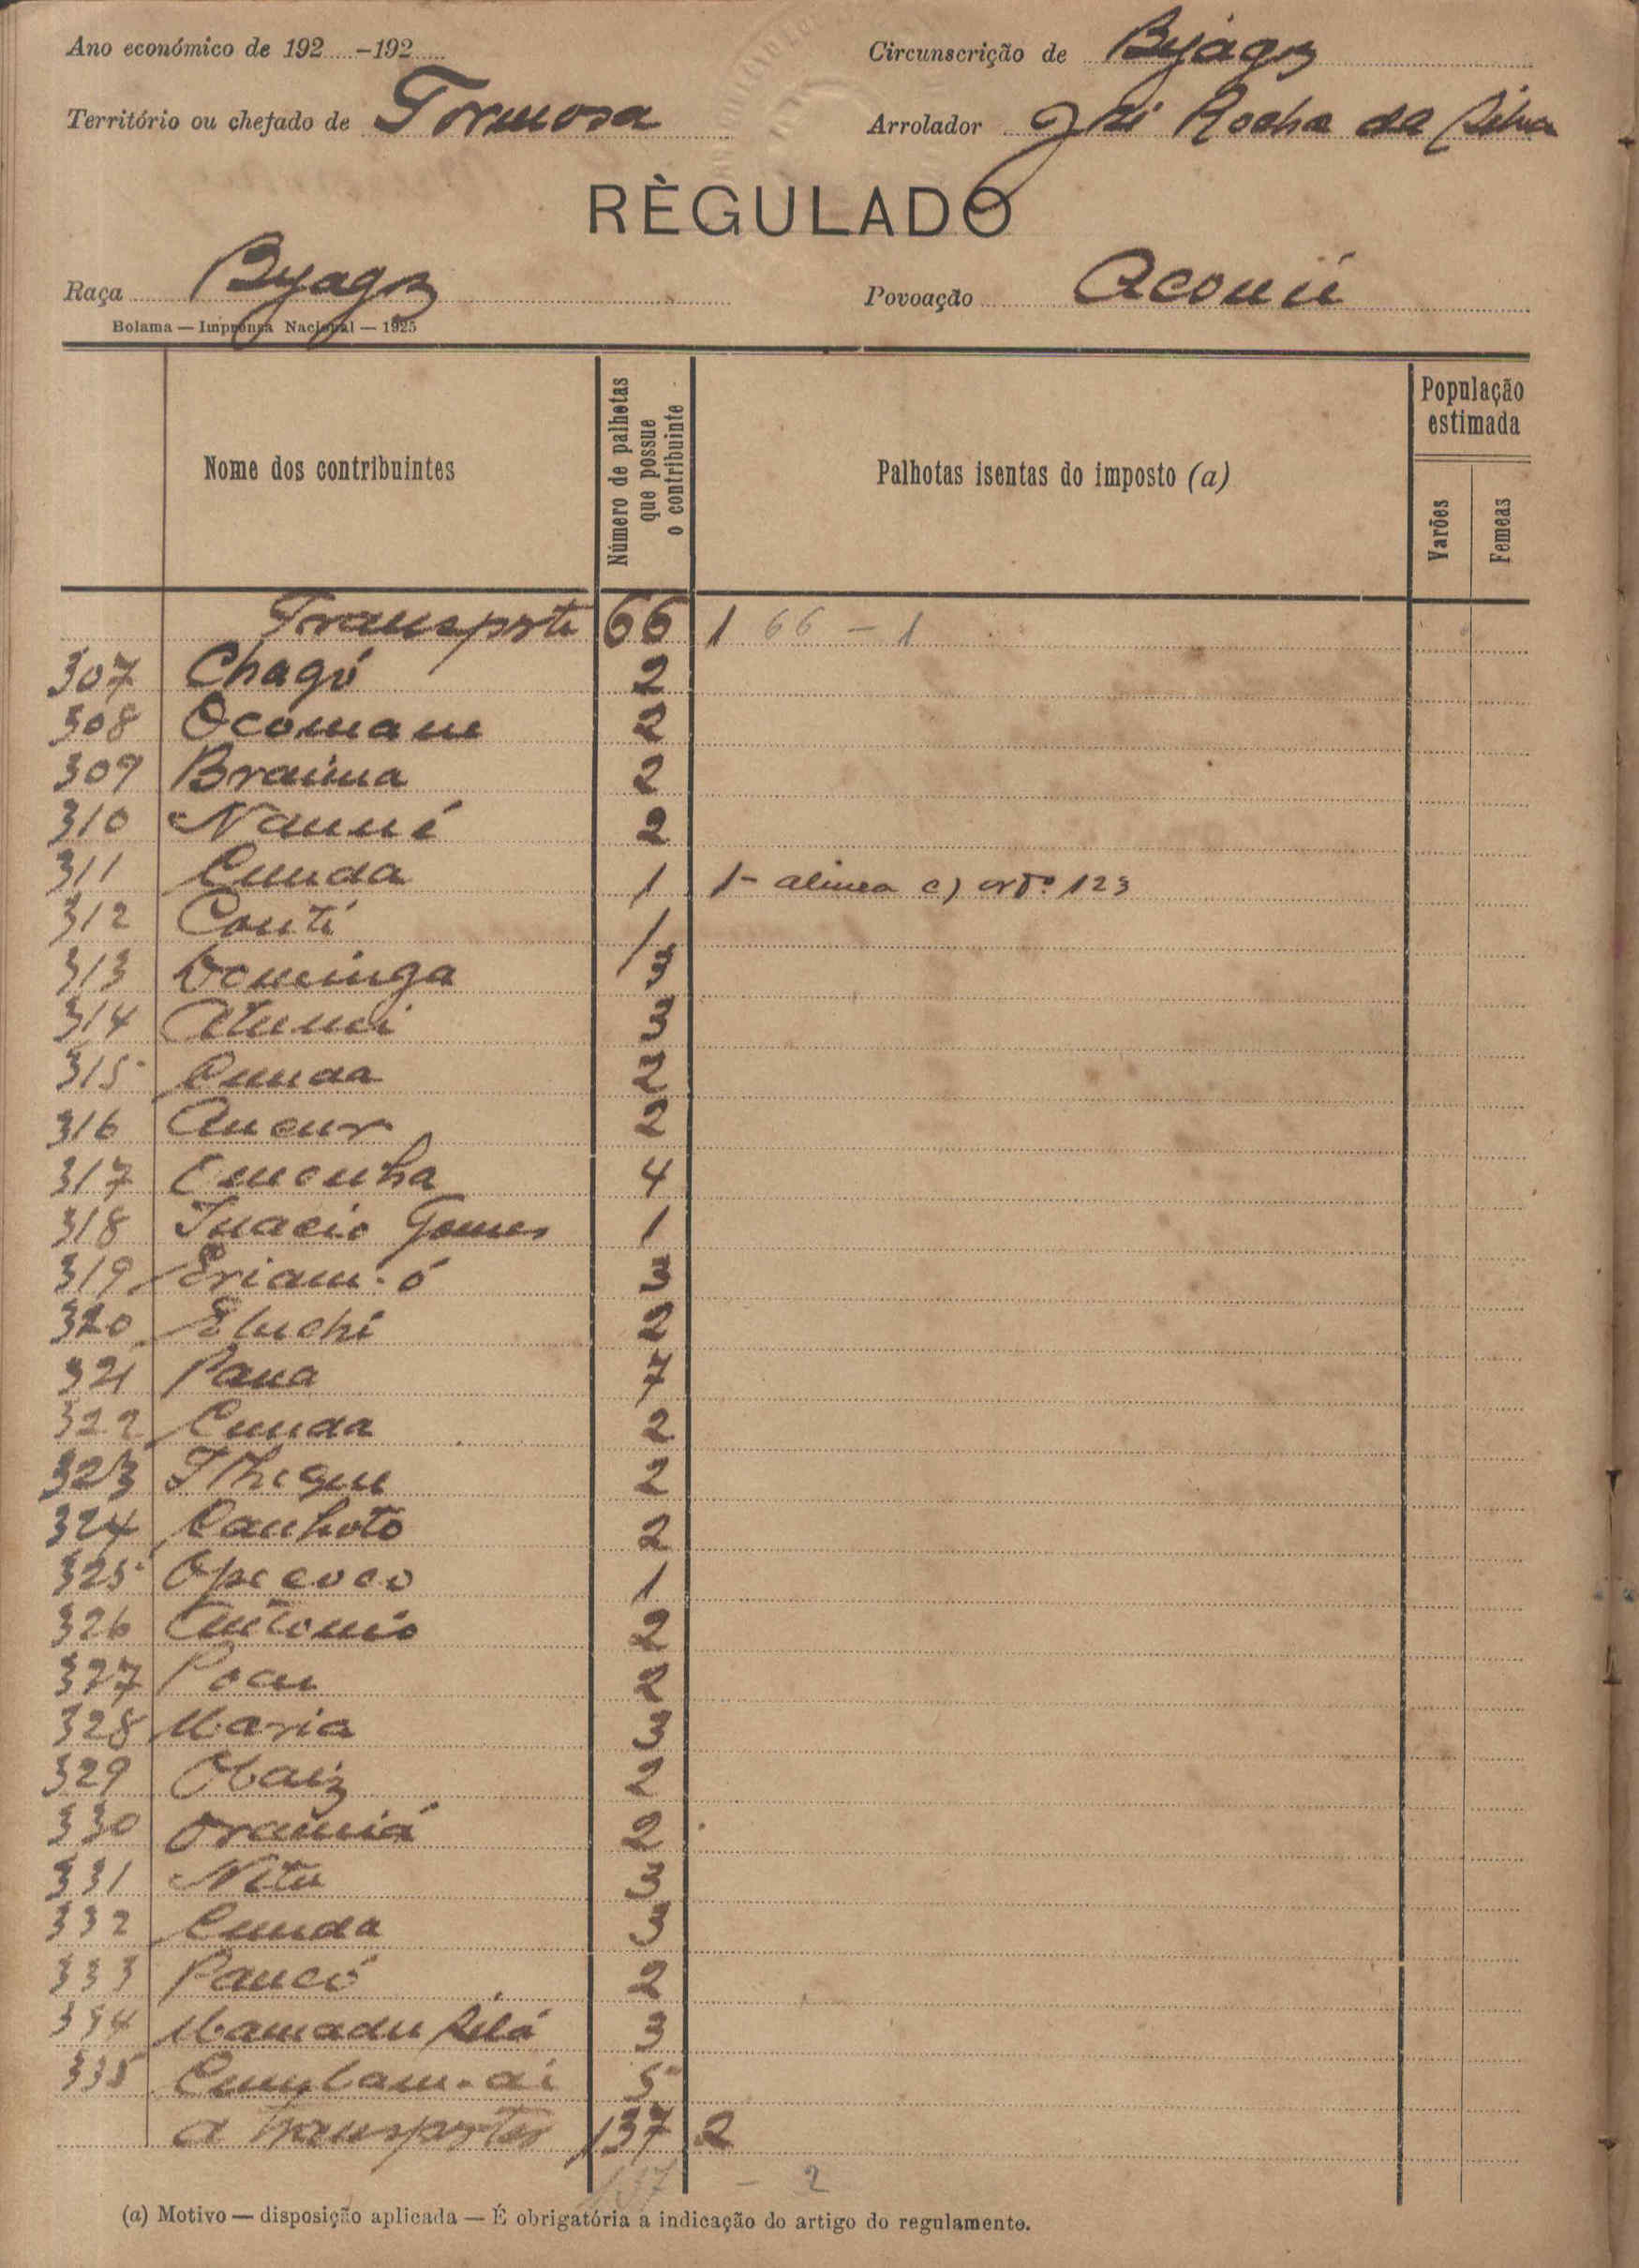 Ano económico de 192 -192
Circunscrição de Byagoz
Território ou chefado de Formosa
Arrolador José Rocha da Silva
RÈGULADO
Raça Byagoz
Povoação
Bolama — Imprensa Nacional — 1925
Nome dos contribuintes
Número de palhetas que possue o contribuinte
Palhotas isentas do imposto (a)
População estimada
Varões
Femeas
Transporte 66 1 66 - 1
307 Chagó 2
308 Ocomane 2
309 Braima 2
310 Nanní 2
311 Cunda 1 1- alinea c) artº 123
312 Conti 1
313 Dominga 3
314 3
315 Cunda 2
316 Ancur 2
317 4
318 Inacio Gomes 1
319 Eriam-ó 3
320 Eluchi 2
321 Pana 7
322 Cunda 2
323 2
324 Canhoto 2
325 Opecoco 1
326 Antonio 2
327 2
328 Maria 3
329 2
330 2
331 Nitu 3
332 Cunda 3
333 Pancó 2
334 Mamadu 3
335 5
a transportar 137 2
137 - 2
(a) Motivo — disposição aplicada — É obrigatória a indicação do artigo do regulamento.